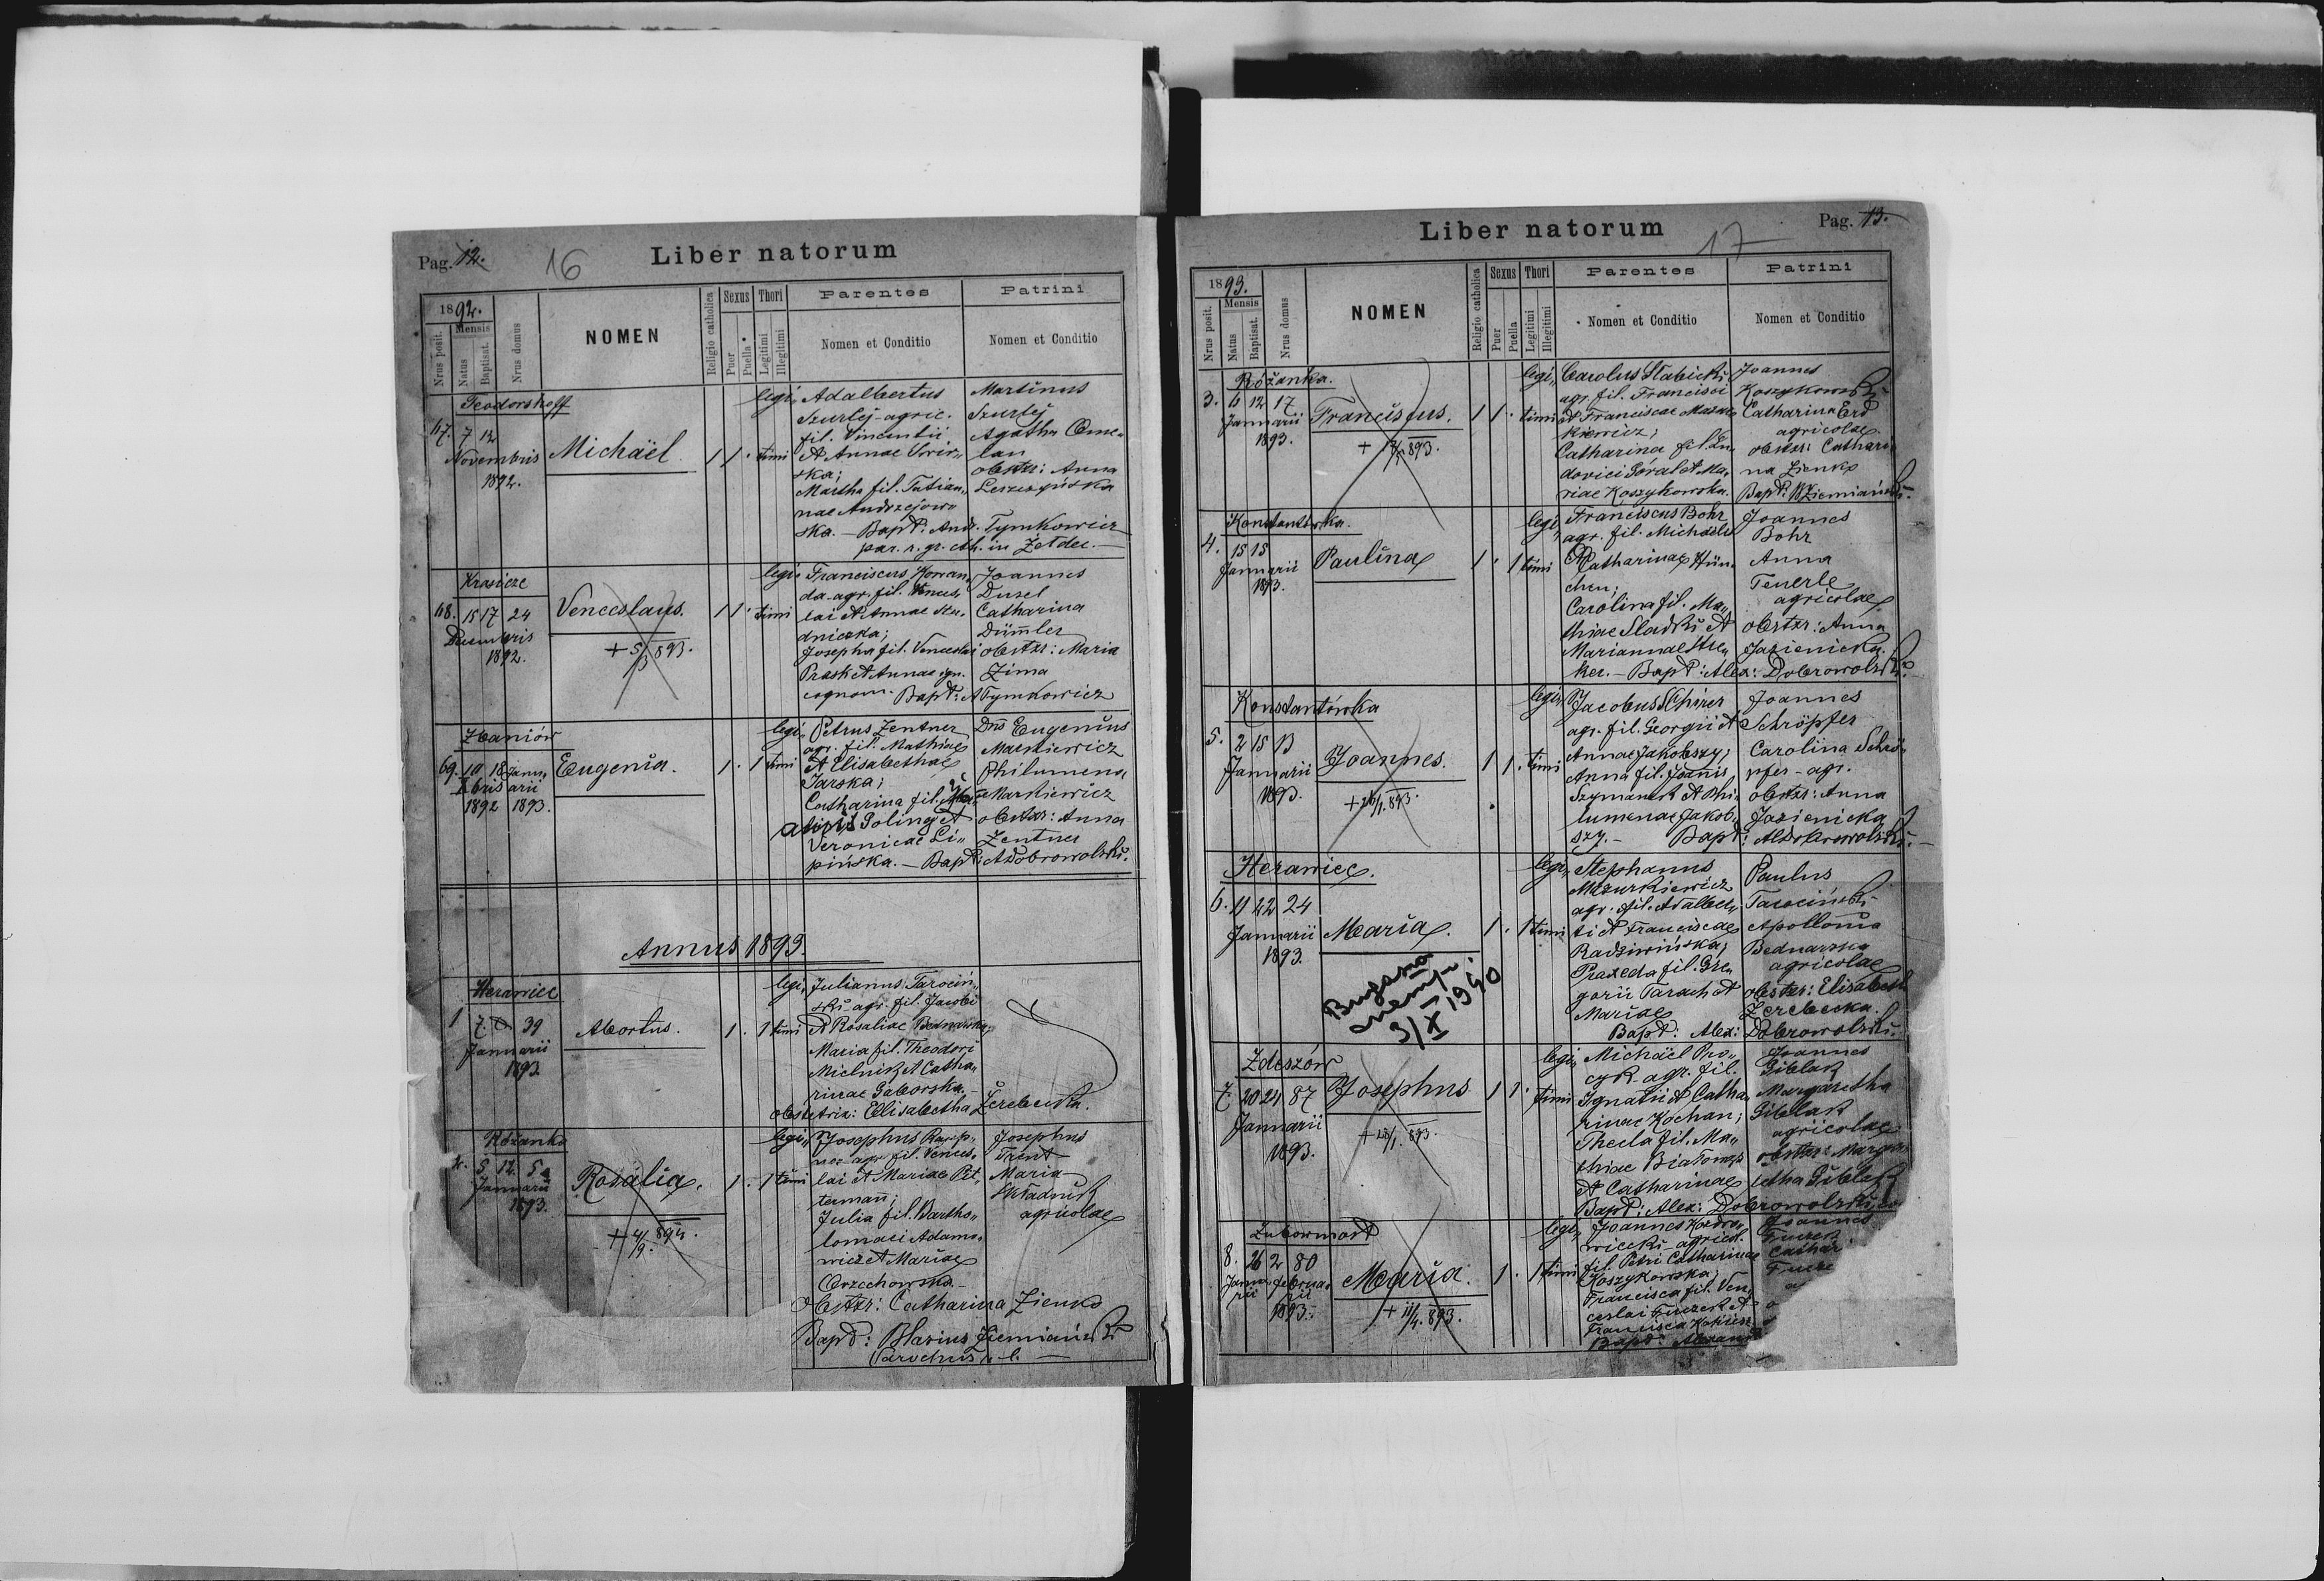 Pag. 12. 16 Liber natorum
1892.
Nrus posit. Mensis Natus Baptisat. Nrus domus NOMEN Religio catholica Sexus Puer Puella Thori Legitimi Illegitimi Parentes Nomen et Conditio Patrini Nomen et Conditio
Teodorshoff
67. 7 12
Novembris
1892.
Michaël
1 1. legi„
timi
Adalbertus
Szurlej agric.
fil. Vincentii
et Annae
ska;
Martha fil. Tatian„
nae Andrzejow„
ska. — Bapt: And. Tymkowicz
par. r. gr. cth. in Żełdec.
Martinus
Szurlej
Agatha Ome„
lan
obstr: Anna
Leszczyńska
Krasicze
68. 15 17 24
Decembris
1892.
Venceslaus.
+ 5/3 893.
1 1. legi„
timi
Franciscus Kowan„
da agr. fil. Vences„
lai et Annae Stu„
dniczka;
Josepha fil. Venceslai
Prask et Annae ign.
cognom. Bapt: A Tymkowicz
Joannes
Dusel
Catharina
Dümler
obstr: Maria
Zima
Zbaniów
69. 10 18 Janu„
Xbris arii
1892 1893.
Eugenia.
1. 1 legi„
timi
Petrus Zentner
agr. fil. Mathiae
et Elisabethae
Jarska;
Catharina fil.
Poling et
Veronicae Li„
pińska. — Bapt: A Dobrowolski.
Dnus Eugenius
Markiewicz
Philumena
Markiewicz
obstr: Anna
Zentner
Annus 1893.
Herawiec
1 7. 39
Januarii
1893.
Abortus.
1. 1 legi„
timi
Julianus Tarociń„
ski agr. fil. Jacobi
et Rosaliae Bednarska;
Maria fil. Theodori
Mielnik et Catha„
rinae Gaborska.
obstetrix: Elisabetha Zerebecka.
Różanka
2. 5 12 5
Januarii
1893.
Rosalia.
+ 4/9. 894.
1. 1 legi„
timi
Josephus
agr. fil. Vences„
lai et Mariae Pet„
termann;
Julia fil. Bartho„
lomaei Adamo„
wicz et Mariae
Orzechowska
obstr: Catharina Zienko
Bapt: Blasius Ziemiański
Parochus r. l.
Josephus
Trent
Maria
Składnik
agricolae
Liber natorum 17 Pag. 13.
1893.
Nrus posit. Mensis Natus Baptisat. Nrus domus NOMEN Religio catholica Sexus Puer Puella Thori Legitimi Illegitimi Parentes Nomen et Conditio Patrini Nomen et Conditio
Różanka.
3. 6 12 17
Januarii
1893.
Franciscus.
893.
1 1. legi„
timi
Carolus Słabicki
agr. fil. Francisci
et Franciscae Mazur„
kiewicz;
Catharina fil. Lu„
dovici Góral et Ma„
riae Koszykowska.
Joannes
Koszykowski
Catharina Erd
agricolae.
obstr: Cathari„
na Zienko
Bapt: B Ziemiański.
Konstantówka.
4. 15 15
Januarii
1893.
Paulina
1. 1 legi„
timi
Franciscus Bohr
agr. fil. Michaëlis
et Catharinae Hün„
chen;
Carolina fil. Ma„
thiae Sladki et
Mariannae Stre„
ker. — Bapt: Alex: Dobrowolski.
Joannes
Bohr
Anna
Feuerle
agricolae
obstr: Anna
Jazienicka.
Konstantówka
5. 2 15 13
Januarii
1893.
Joannes.
893.
1 1. legi„
timi
Jacobus Schirer
agr. fil. Georgii et
Annae Jakobszy;
Anna fil. Joannis
Szymanek et Phi„
lumenae Jakob„
szy. — Bapt: A Dobrowolski.
Joannes
Schröpfer
Carolina Schrö„
pfer — agr.
obstr: Anna
Jazienicka
Herawiec.
6. 11 22 24
Januarii
1893.
Maria.
3/X 1940
1. 1 legi„
timi
Stephanus
Mazurkiewicz
agr. fil. Adalber„
ti et Franciscae
Radziwińska;
Praxeda fil. Gre„
gorii Tarach et
Mariae
Bapt: Alex: Dobrowolski.
Paulus
Tarociński
Apollonia
Bednarska
agricolae
obstr: Elisabeth
Zerebecka.
Zdeszów
7. 20 24 87
Januarii
1893.
Josephus
+ 28/1. 893.
1 1. legi„
timi
Michaël Pro„
cyk agr. fil.
Ignatii et Catha„
rinae Kochan;
Thecla fil. Ma„
thiae Białowąs
et Catharinae
Bapt: Alex: Dobrowolski
Joannes
Giblak
Margaretha
Giblak
agricolae
obstr: Marga„
retha Giblak
Zubowmost
8. 26 2 80
Janua„ februa„
rii rii
1893.
Maria.
+ 11/4. 893.
1. 1 legi„
timi
Joannes Kordro„
wiecki agricol.
fil. Petri Catharinae
Koszykowska;
Francisca fil. Ven„
ceslai Fuczek et
Francisca
Bapt: Alexand
Joannes
Fuczek
Cathar
Fucze